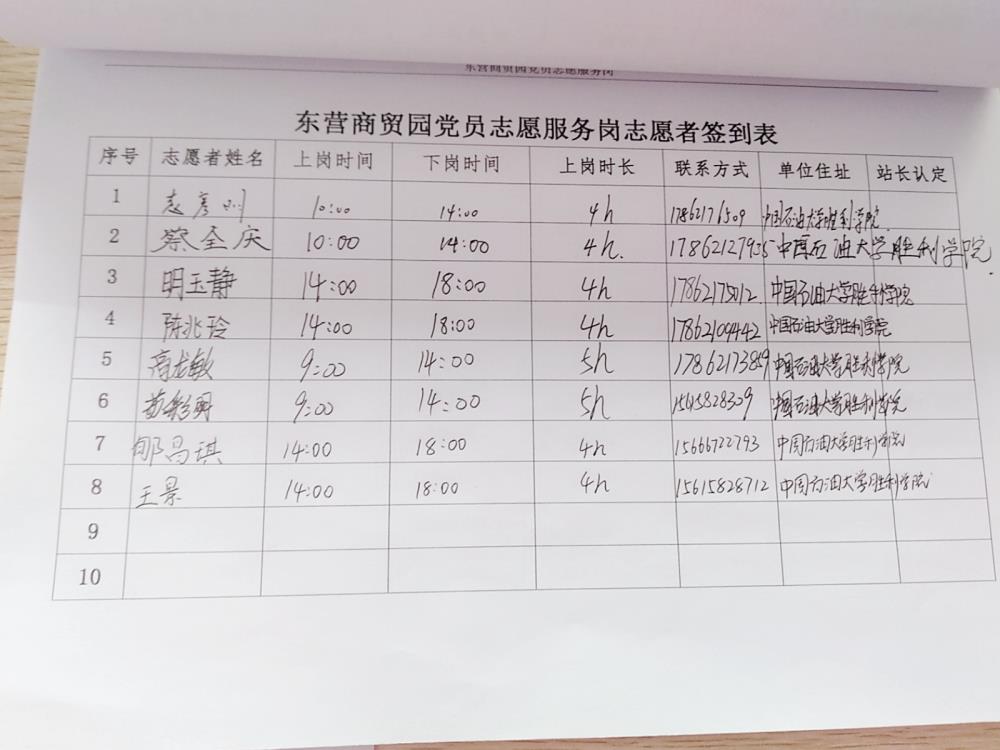 东营商贸园党员志愿服务岗
东营商贸园党员志愿服务岗志愿者签到表
序号 志愿者姓名 上岗时间 下岗时间 上岗时长 联系方式 单位住址 站长认定
1 10:00 14:00 4h 17862176509 中国石油大学胜利学院
2 蔡全庆 10:00 14:00 4h. 17862127935 中国石油大学胜利学院
3 明玉静 14:00 18:00 4h 17862175012 中国石油大学胜利学院
4 陈兆玲 14:00 18:00 4h 17862109442 中国石油大学胜利学院
5 高龙敏 9:00 14:00 5h 17862173859 中国石油大学胜利学院
6 9:00 14:00 5h 15615828309 中国石油大学胜利学院
7 郇昌琪 14:00 18:00 4h 15666722793 中国石油大学胜利学院
8 王景 14:00 18:00 4h 15615828712 中国石油大学胜利学院
9
10